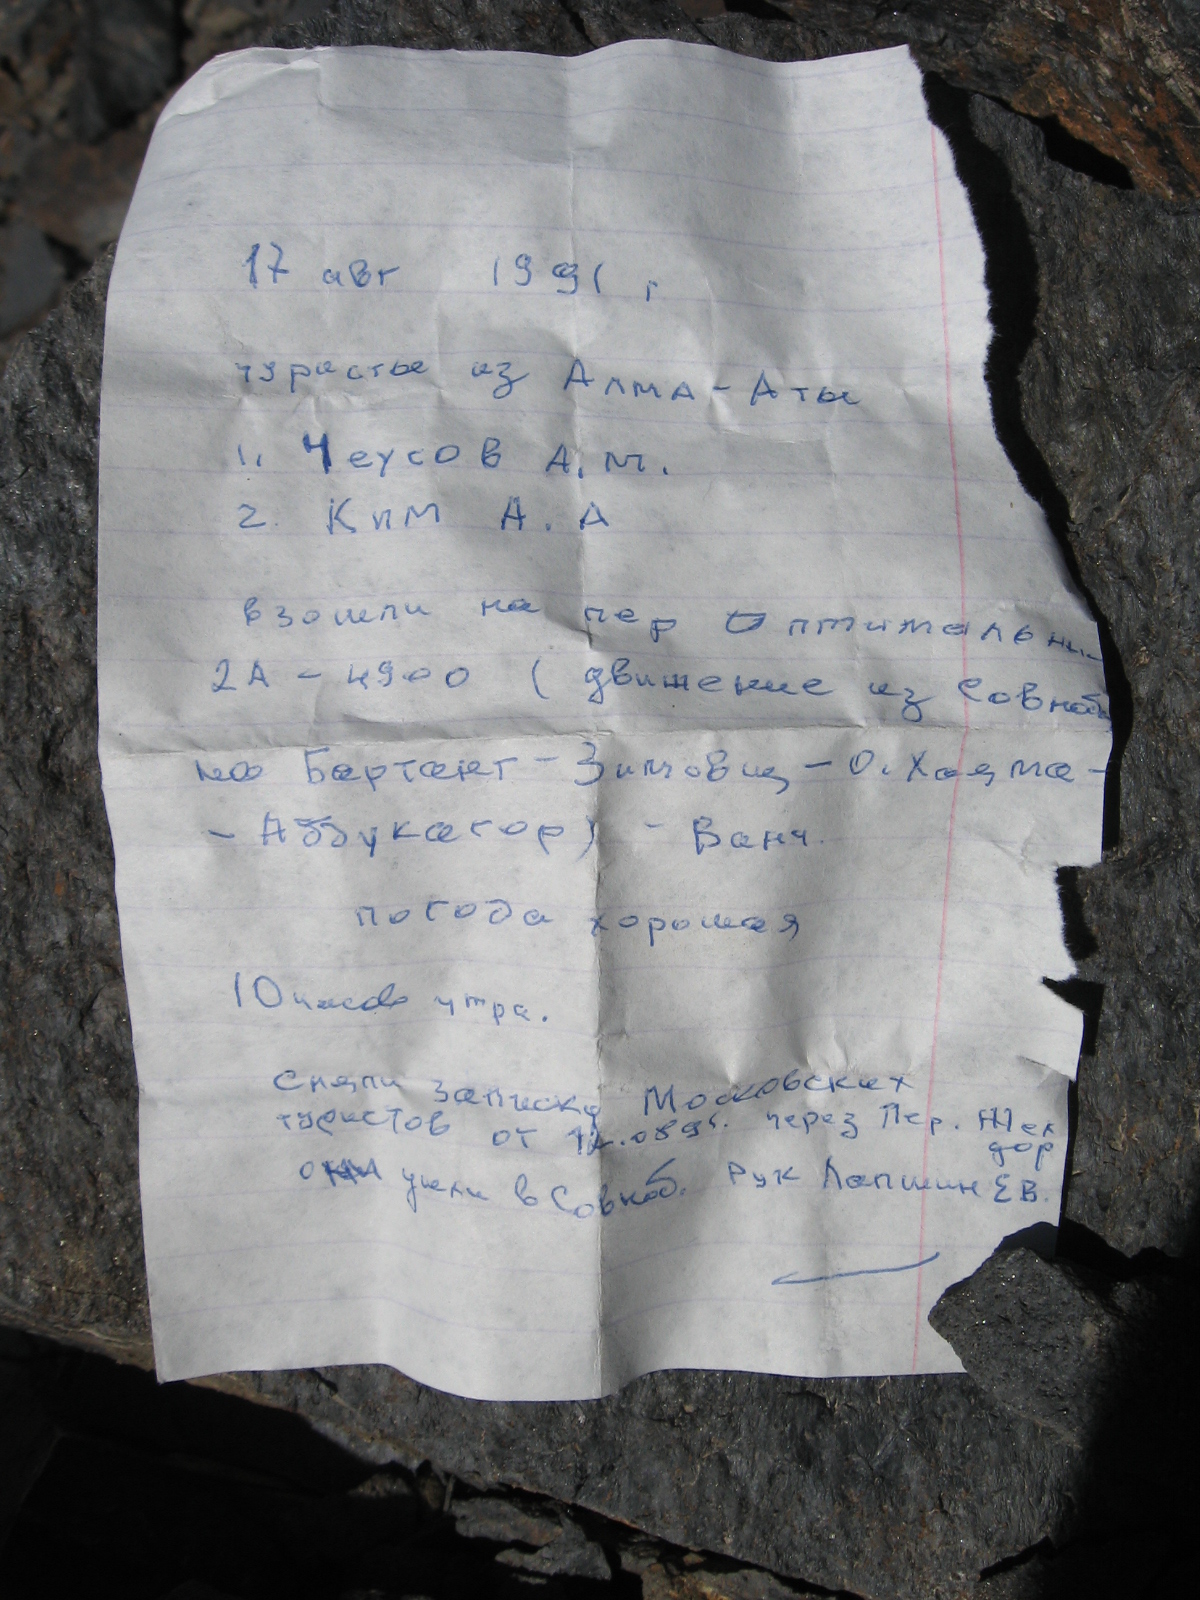 17 авг 1991 г
туристы из Алма-Аты
1. Чеусов А.М.
2. Ким А.А
взошли на пер Оптимальный
2А - 4900 ( движение из Совнаб
на Бартанг - Зимовщ - О. Хаяма -
- Абдукагор) - Ванч.
погода хорошая
10 часов утра.
Сняли записку Московских
туристов от 12.08 91. через Пер. Жен
дор
они ушли в Совнаб. Рук Лапшин ЕВ.